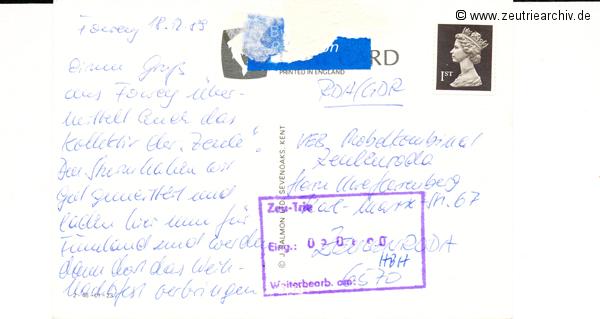 © www.zeutriearchiv.de
Fowey 18.12.89
Einen Gruß
aus Fowey über-
mittelt auch das
Kollektiv der "Zeude".
Den Sturm haben wir
gut gemeistert und
laden hier nun für
Finnland und werden
dann dort das Weih-
nachtsfest verbringen
CARD
PRINTED IN ENGLAND
1ST
DDR/GDR
VEB Möbelkombinat
Zeulenroda
Herrn
Karl-Marx-Str. 67
ZEULENRODA
HBH
6570
© J. SALMON LTD. SEVENOAKS, KENT
Zeu-Trie
Eing.:
Weiterbearb. am: